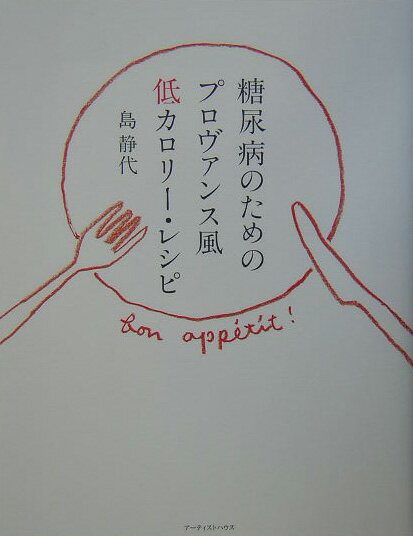 糖尿病のための
プロヴァンス風
低カロリー・レシピ
島 静代
bon appétit!
アーティストハウス